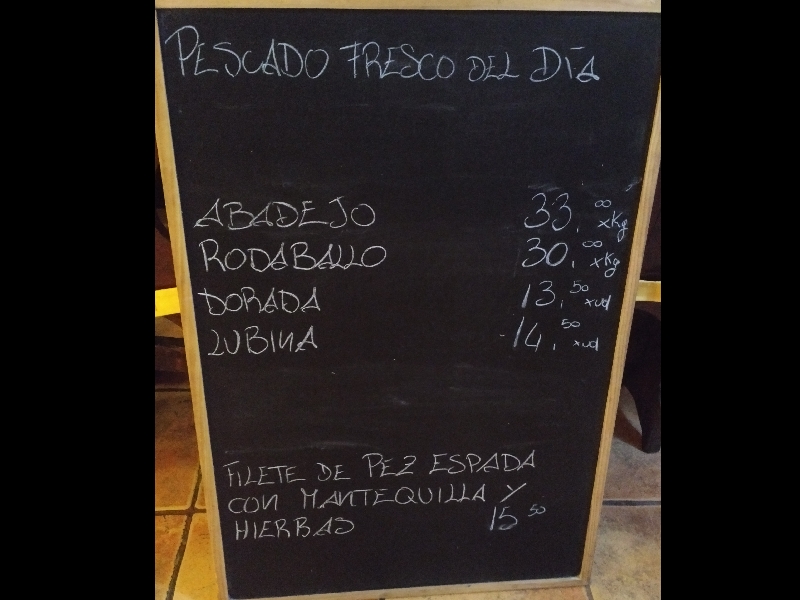 PESCADO FRESCO DEL DÍA
ABADEJO 33,00 xKg
RODABALLO 30,00 xKg
DORADA 13,50 xud
LUBINA 14,50 xud
FILETE DE PEZ ESPADA
CON MANTEQUILLA Y
HIERBAS 15 50